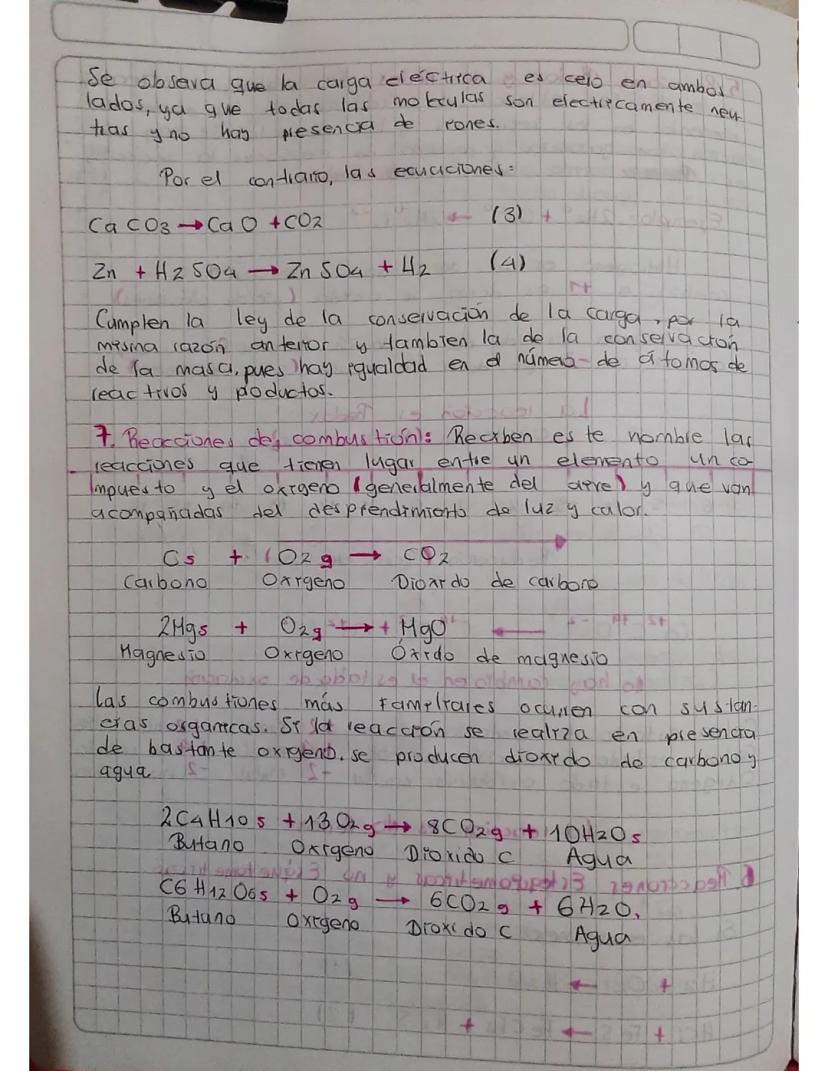 Se observa que la carga eléctrica es cero en ambos
lados, ya que todas las moleculas son electricamente neu-
tras y no hay presencia de iones.
Por el contrario, las ecuaciones:
CaCO3 → CaO + CO2 (3)
Zn + H2SO4 → ZnSO4 + H2 (4)
Cumplen la ley de la conservación de la carga, por la
misma razón anterior y tambien la de la conservación
de la masa, pues hay igualdad en el número de átomos de
reactivos y poductos.
7. Reacciones de combustión: Reciben este nombre las
reacciones que tienen lugar entre un elemento un co-
mpuesto y el oxigeno (generalmente del aire) y que van
acompañadas del desprendimiento de luz y calor.
Cs + O2g → CO2
Carbono Oxigeno Dioxido de carbono
2Mgs + O2g → + MgO
Magnesio Oxigeno Óxido de magnesio
las combustiones más familiares ocurren con sustan-
cias organicas. Si la reacción se realiza en presencia
de bastante oxigeno. se producen dioxido de carbono y
agua
2C4H10s + 13O2g → 8CO2g + 10H2Os
Butano Oxigeno Dioxido C Agua
C6H12O6s + O2g → 6CO2g + 6H2O.
Butano Oxigeno Dioxido C Agua